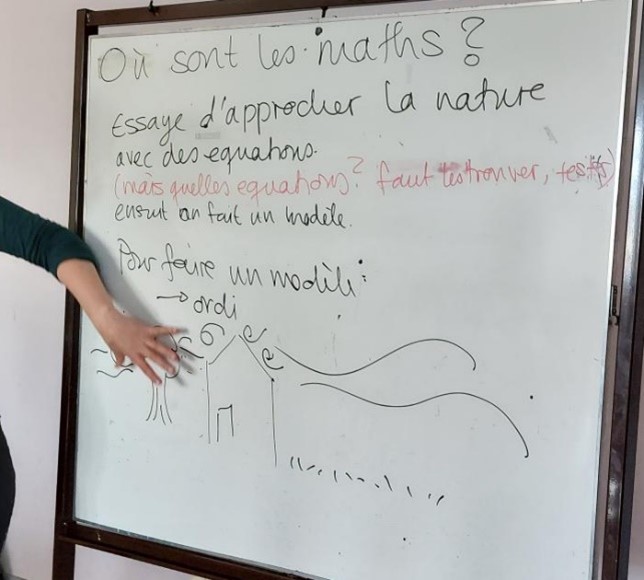 Où sont les maths ?
Essaye d'approcher la nature
avec des equations.
(mais quelles equations? faut les trouver, tests)
ensuit on fait un modèle.
Pour faire un modèle :
→ ordi